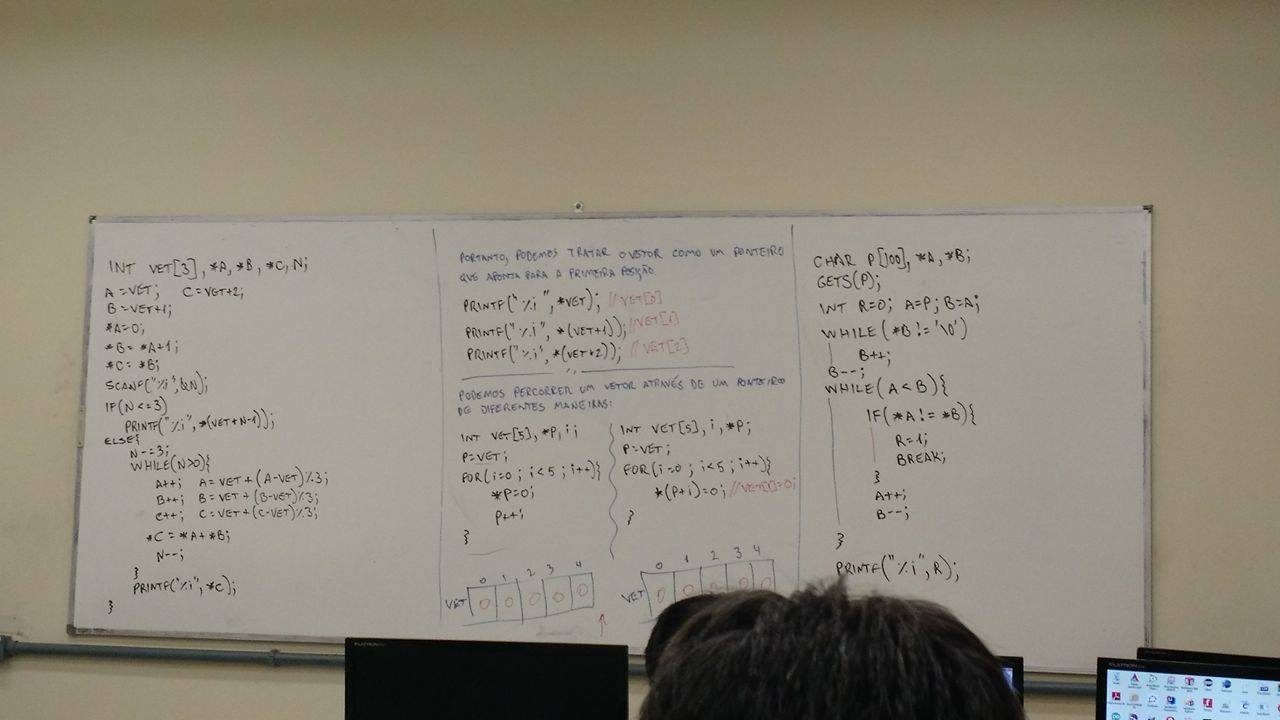 INT VET[3], *A, *B, *C, N;
A=VET; C=VET+2;
B=VET+1;
*A=0;
*B=*A+1;
*C=*B;
SCANF("%i",&N);
IF(N<=3)
PRINTF("%i",*(VET+N-1));
ELSE{
N-=3;
WHILE(N>0){
A++; A=VET+(A-VET)%3;
B++; B=VET+(B-VET)%3;
C++; C=VET+(C-VET)%3;
*C=*A+*B;
N--;
}
PRINTF("%i",*C);
}
PORTANTO, PODEMOS TRATAR O VETOR COMO UM PONTEIRO
QUE APONTA PARA A PRIMEIRA POSIÇÃO.
PRINTF("%i",*VET); //VET[0]
PRINTF("%i",*(VET+1)); //VET[1]
PRINTF("%i",*(VET+2)); //VET[2]
PODEMOS PERCORRER UM VETOR ATRAVÉS DE UM PONTEIRO
DE DIFERENTES MANEIRAS:
INT VET[5], *P, i;
P=VET;
FOR(i=0; i<5; i++){
*P=0;
P++;
}
0 1 2 3 4
VET 0 0 0 0 0
INT VET[5], i, *P;
P=VET;
FOR(i=0; i<5; i++){
*(P+i)=0; //VET[i]=0;
}
0 1 2 3 4
VET 0 0 0 0 0
CHAR P[100], *A, *B;
GETS(P);
INT R=0; A=P; B=A;
WHILE(*B!='\0')
B++;
B--;
WHILE(A<B){
IF(*A!=*B){
R=1;
BREAK;
}
A++;
B--;
}
PRINTF("%i",R);